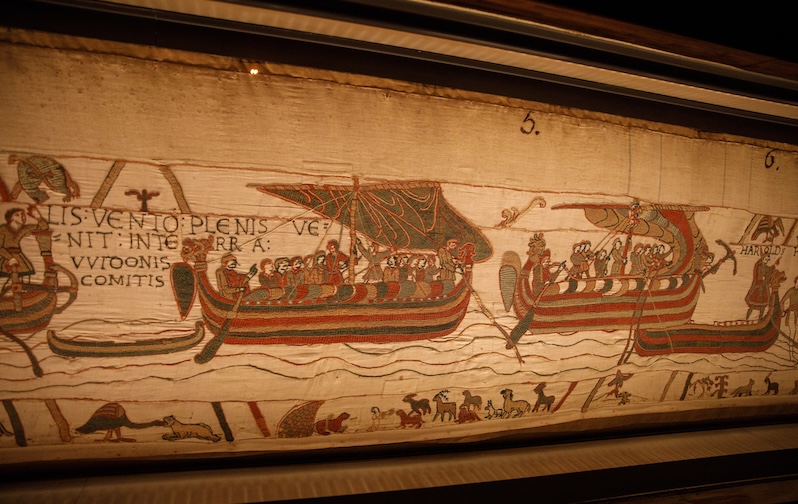 5.
6.
LIS: VENTO: PLENIS VE=
=NIT: INTE RRA:
VVIDONIS
COMITIS
HAROLD